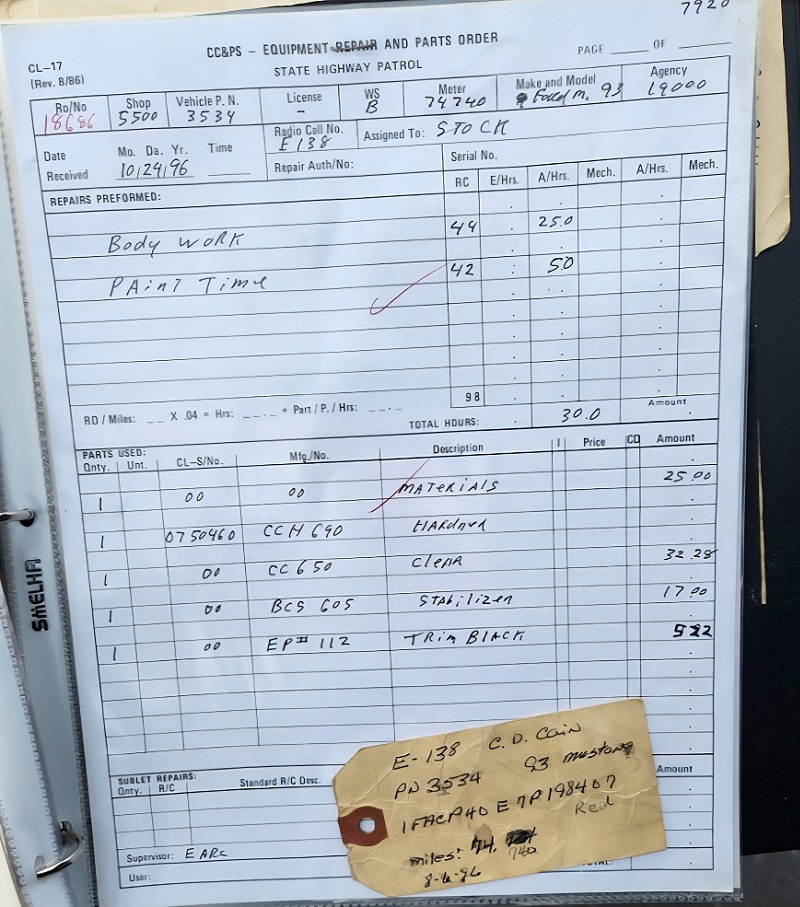 7920
CC&PS - EQUIPMENT REPAIR AND PARTS ORDER
CL-17
(Rev. 8/86)
STATE HIGHWAY PATROL
PAGE ____ OF ____
Ro/No 18686 Shop 5500 Vehicle P. N. 3534 License - WS B Meter 74740 Make and Model Ford m. 93 Agency 19000
Date Received Mo. Da. Yr. 10/24/96 Time
Radio Call No. E 138 Assigned To: STOCK
Repair Auth/No: Serial No.
REPAIRS PREFORMED: RC E/Hrs. A/Hrs. Mech. A/Hrs. Mech.
Body WORK 44 25.0
PAinT Time 42 5.0
98
RD / Miles: __ X .04 = Hrs: __.__ + Part / P. / Hrs: __.__ Amount
TOTAL HOURS: 30.0
PARTS USED:
Qnty. Unt. CL-S/No. Mfg./No. Description I Price CD Amount
1 00 00 MATERIALS 25.00
1 0750460 CCH 690 HARDner
1 00 CC 650 CleAR 32.28
1 00 BCS 605 STAbilizer 17.00
1 00 EP# 112 TRim BLACK 522
SUBLET REPAIRS:
Qnty. R/C Standard R/C Desc. Amount
Supervisor: EARL
User:
E-138 C.D. Cain
PN 3534 93 mustang
1FACP40E7P198407
Red
miles: 74, 740
8-6-96
SMELHA